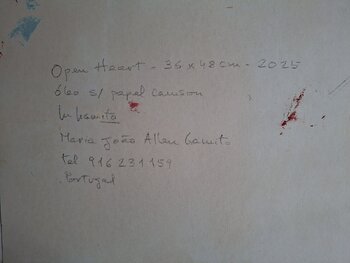 Open Heart - 36 x 48cm - 2025
óleo s/ papel canson
Gamito
Maria João Allen Gamito
tel 916 231 159
Portugal